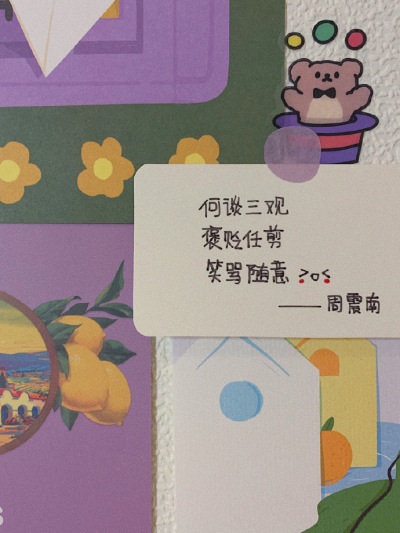 何谈三观
褒贬任剪
笑骂随意 >o<
——周震南
s